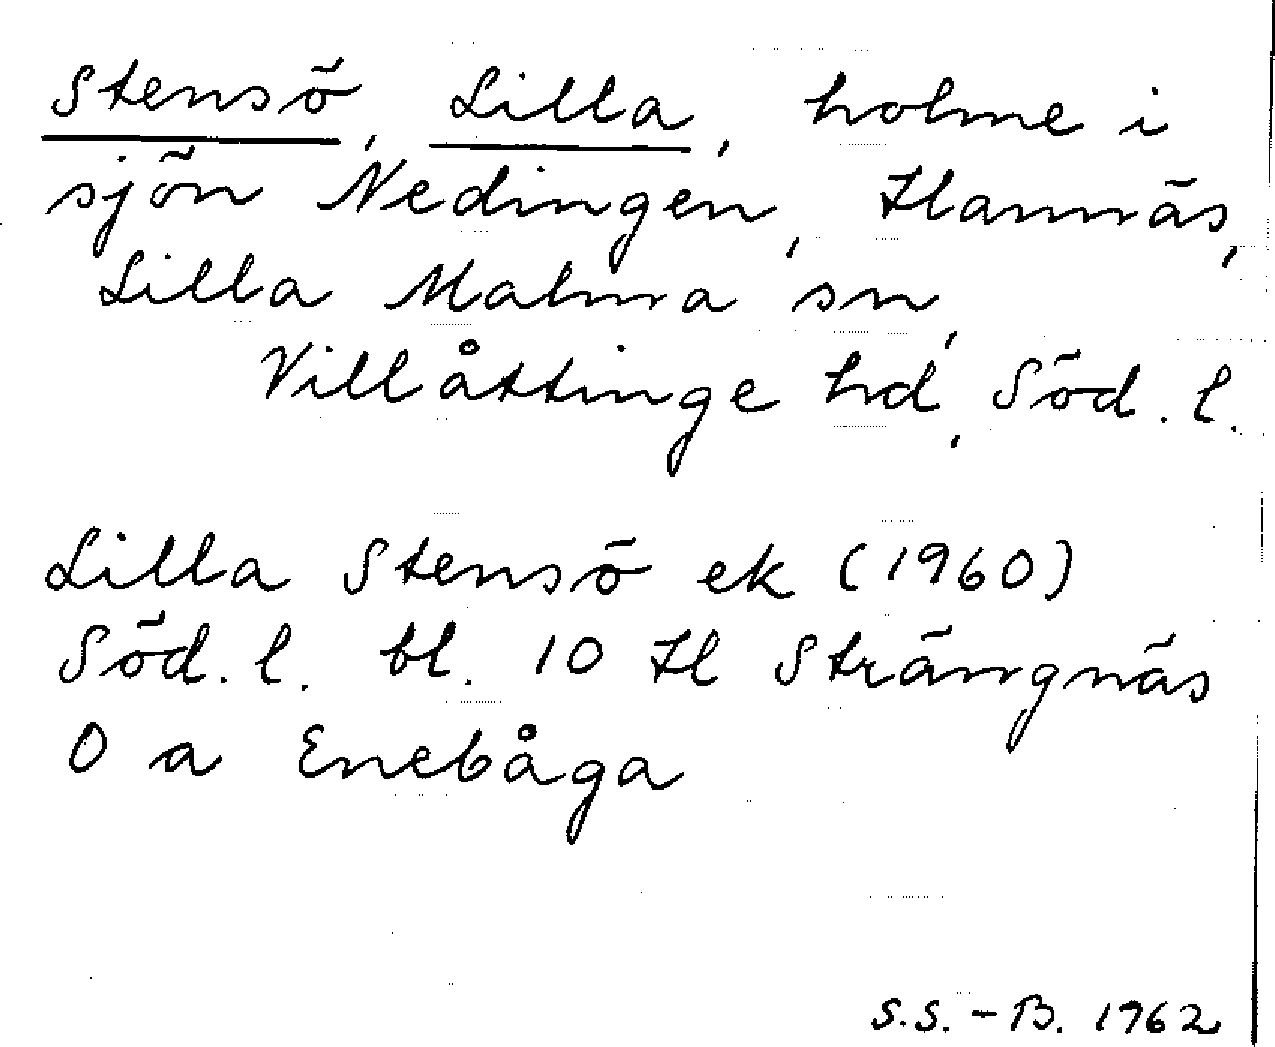 Stensö, Lilla, holme i
sjön Nedingen, Hannäs,
Lilla Malma sn,
Villåttinge hd, Söd. l.
Lilla Stensö ek (1960)
Söd. l. bl. 10 H Strängnäs
O a Enebåga
S.S.-B. 1962